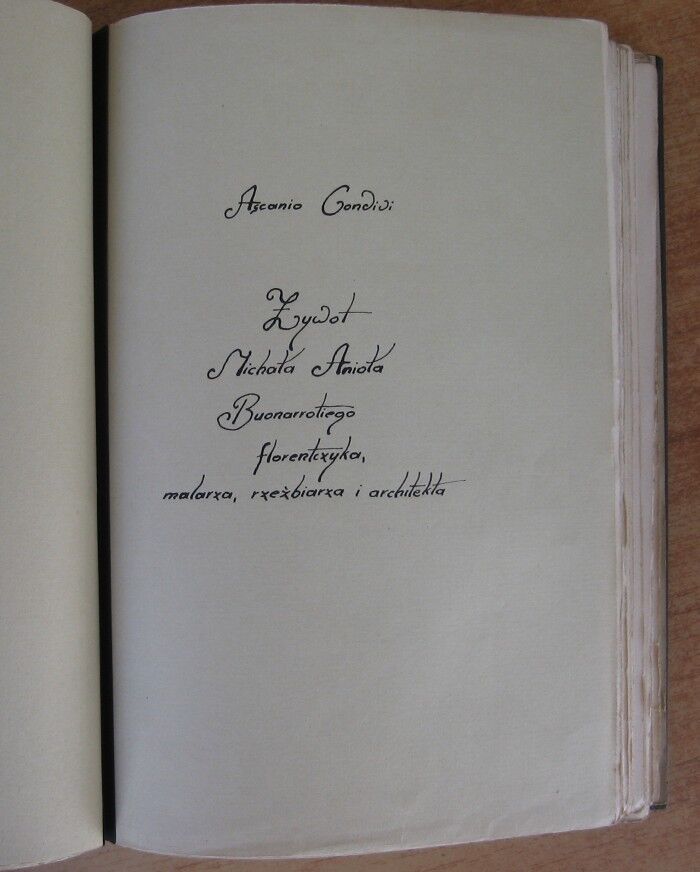 Ascanio Condivi
Żywot
Michała Anioła
Buonarrotiego
florentczyka,
malarza, rzeźbiarza i architekta